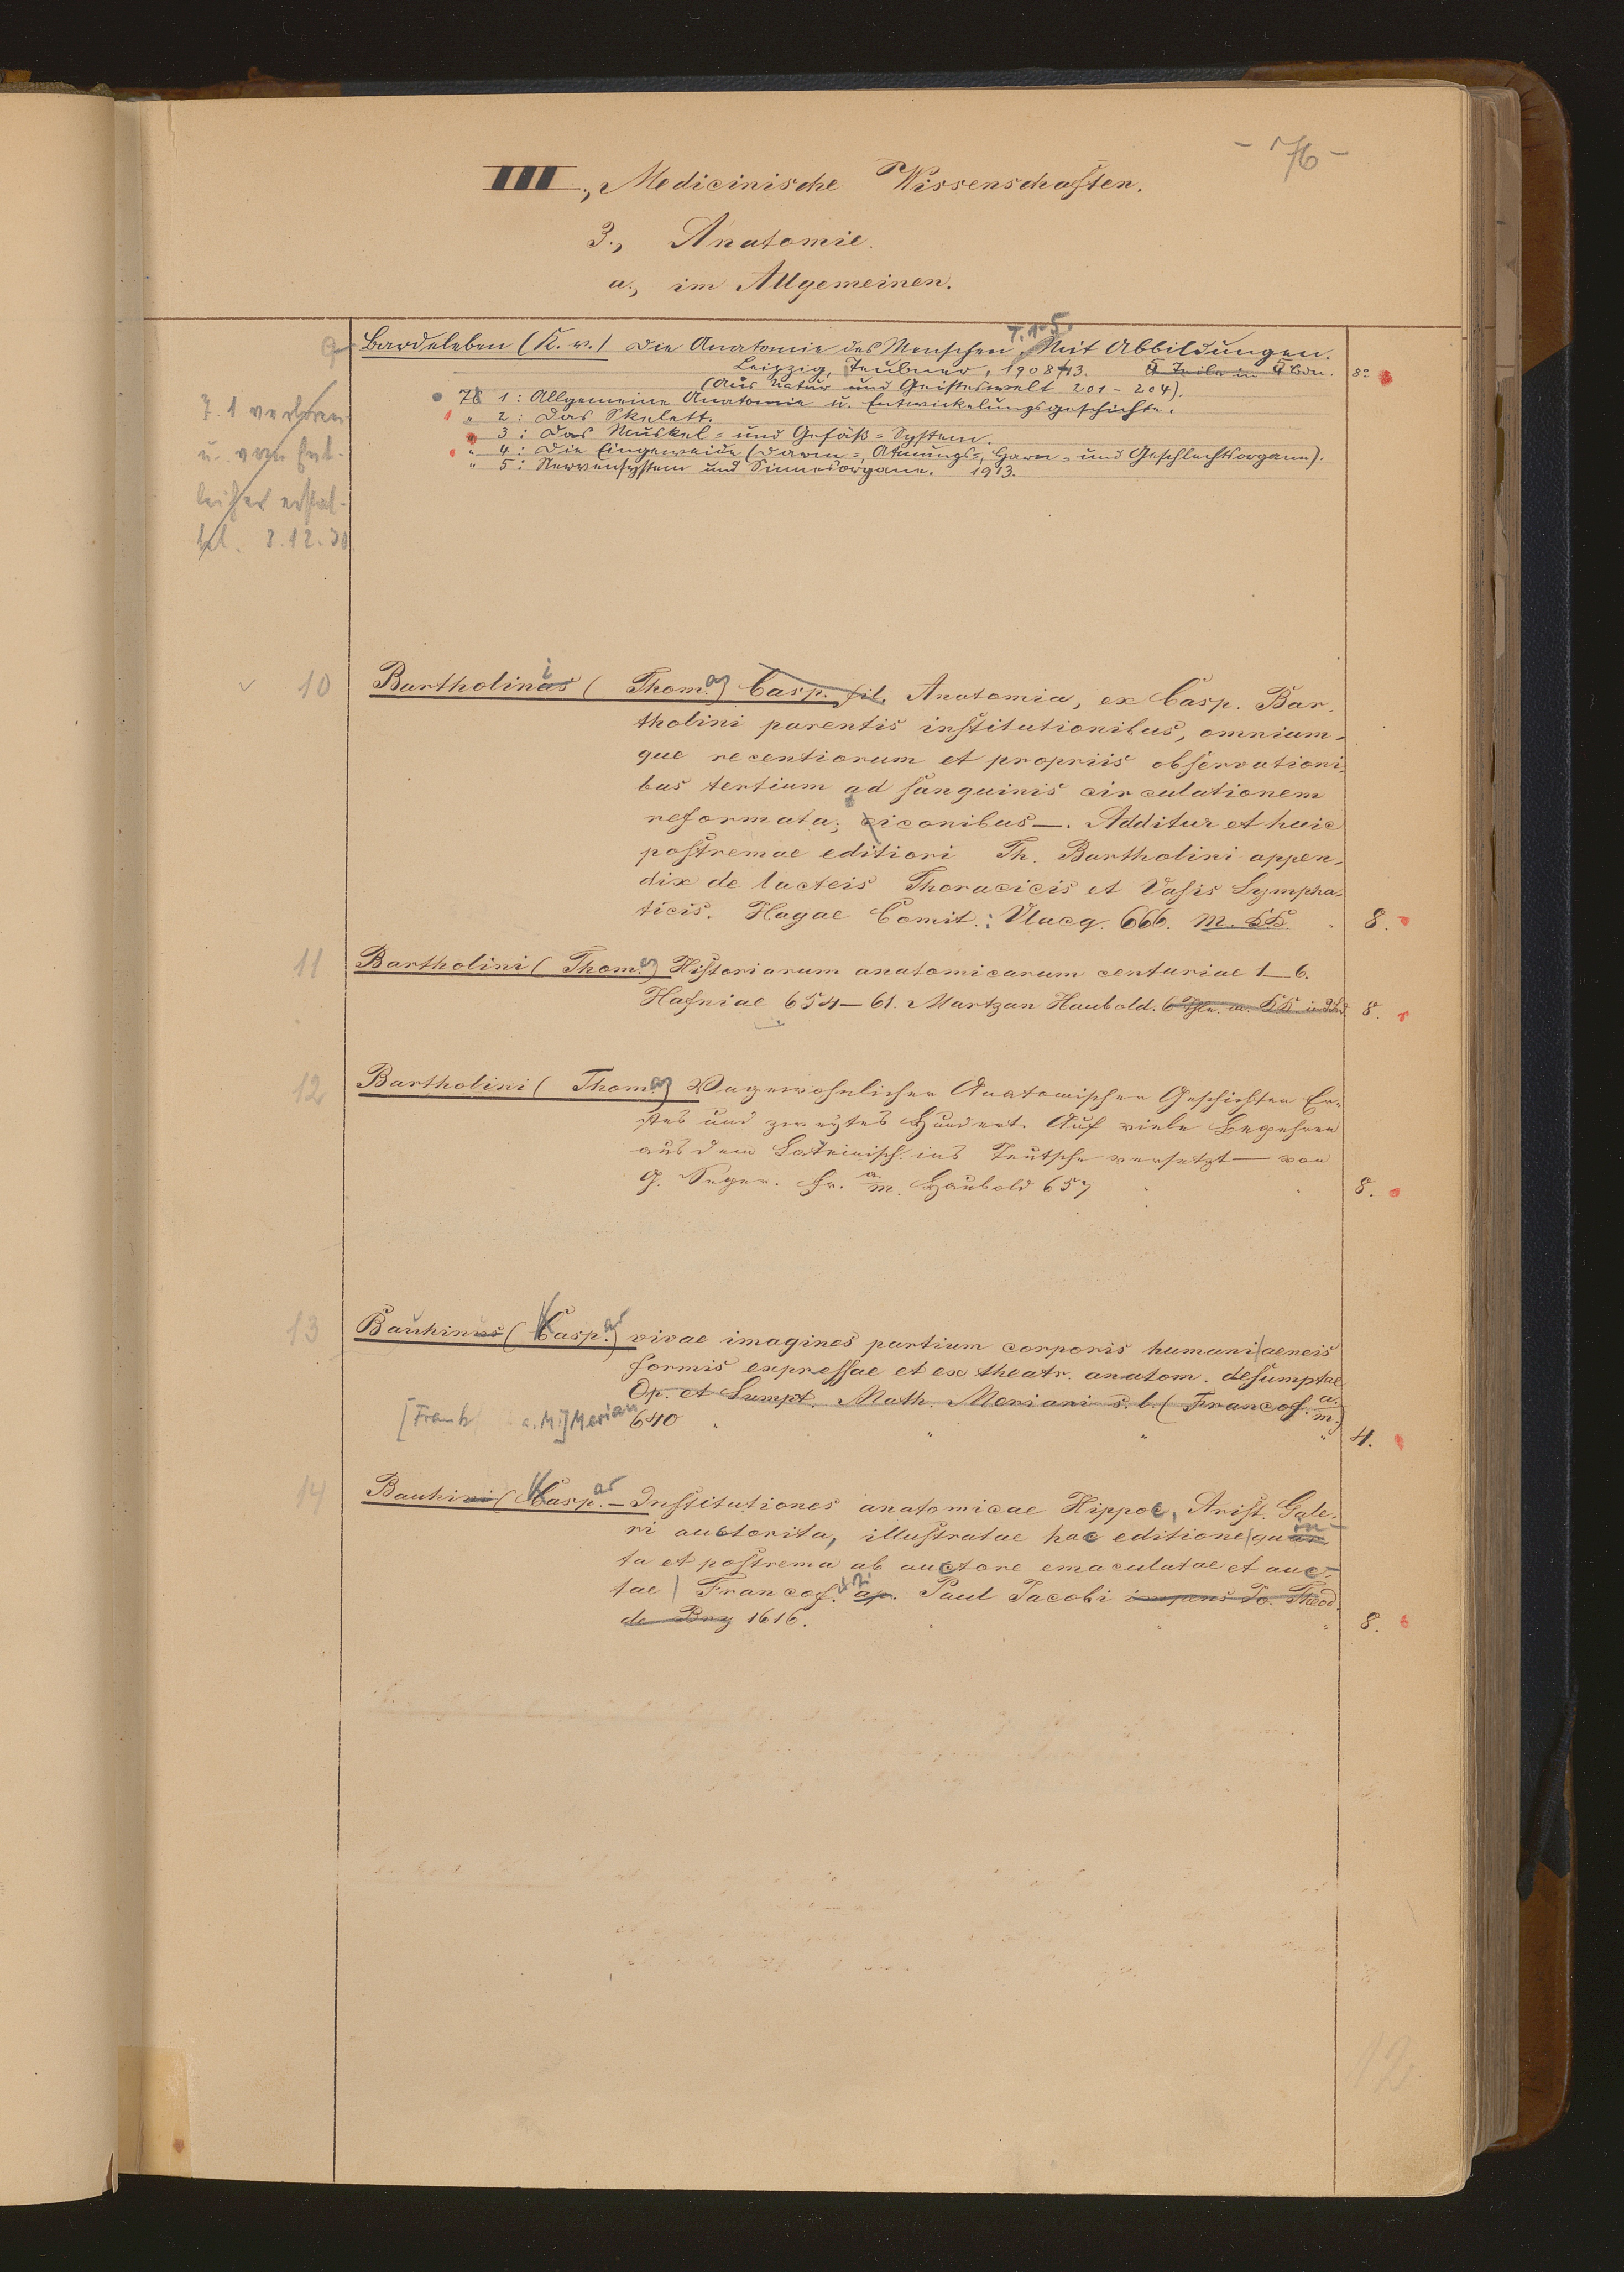 - 76 -
III., Medicinische Wissenschaften.
3., Anatomie.
a., im Allgemeinen.
9 Bardeleben (K. v.) Die Anatomie des Menschen. T. 1-5. Mit Abbildungen.
Leipzig, Teubner, 1908-13. 5 Teile in 5 Bdn. 8°
(Aus Natur und Geisteswelt 201 - 204).
1 : Allgemeine Anatomie u. Entwickelungsgeschichte.
" 2 : Das Skelett.
" 3 : Das Muskel= und Gefäß=System.
" 4 : Die Eingeweide (Darm=, Atmungs=, Harn= und Geschlechtsorgane).
" 5 : Nervensystem und Sinnesorgane. 1913.
T. 1 verloren
u. vom Ent-
leiher erstat-
tet. 3.12.30
10 Bartholinus i ( Thom.as) Casp. fil. Anatomia, ex Casp. Bar-
tholini parentis institutionibus, omnium-
que recentiorum et propriis observationi-
bus tertium ad sanguinis circulationem
reformata; iconibus—. Additur et huic
postremae editiori Th. Bartholini appen-
dix de lacteis Thoracicis et Vasis Lympha-
ticis. Hagae Comit.: Vlacq. 666. m. KK. 8.
11 Bartholini ( Thom.as) Historiarum anatomicarum centuriae 1_6.
Hafniae 654—61. Martzan Haubold. 8.
12 Bartholini ( Thom.as) Ungewohnlicher Anatomischer Geschichten Er-
stes und zweytes Hundert. Auf viele Begehren
aus dem Lateinisch. ins Teutsche versetzt — von
G. Seger. Fr. a. m. Haubold 657 8.
13 Bauhinus ( Kasp.ar) vivae imagines partium corporis humani | aeneis
formis expressae et ex theatr. anatom. desumptae
Op. et Sumpt. Math. Meriani s. l. ( Francof. a. m.)
[Frankf a. M.] Merian 640 " " " " 4.
14 Bauhini ( Kasp.ar — Institutiones anatomicae Hippoc, Arist. Gale-
ri auctorita, illustratae hac editione | quin
ta et postrema ab auctore emaculatae et auc-
tae | Francof. ap. Paul Jacobi impens Jo. Theod.
de Bry 1616. 8.
12